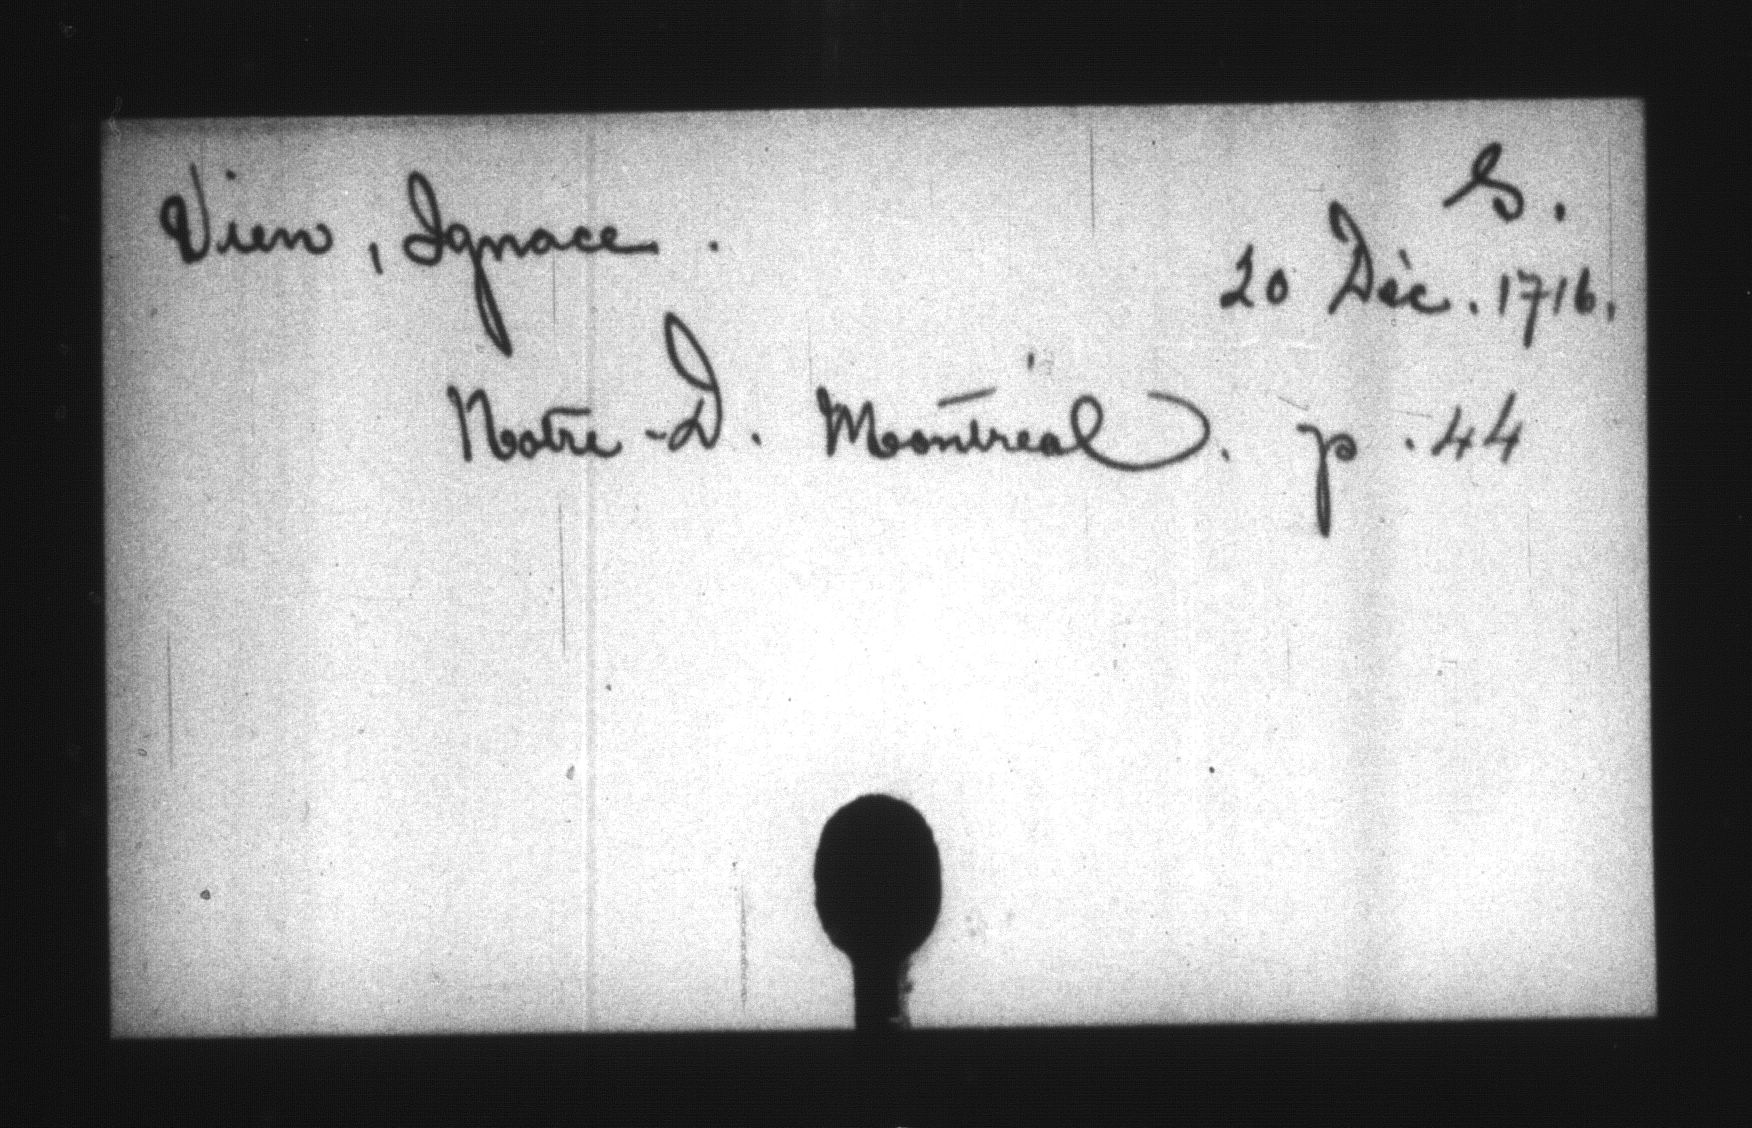 S.
Vien, Ignace.
20 Déc. 1716.
Notre-D. Montréal. p. 44